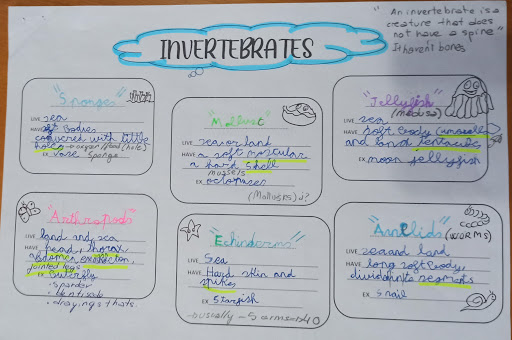 INVERTEBRATES
"An invertebrate is a
creature that does
not have a spine"
It haven't bones
"Sponges"
LIVE sea
HAVE soft bodies
convered with little
holes → oxygen/food (hole)
EX Vase Sponge
"Mollusc"
LIVE sea or land
HAVE a soft moscular
a hard shell
mussels
EX octopuses
(Molluscs)
"Jellyfish"
(medusa)
LIVE sea
HAVE soft body (umbrella)
and land tentacule
EX moon jellyfish
"Arthropods"
LIVE land and sea
HAVE head, thorax,
abdomen, exoskeleton,
jointed legs
EX Butterfly
• spander
"Echinderms"
LIVE Sea
HAVE Hard skin and
spikes
EX Starfish
5 armsend 40
"Annelids"
(WORMS)
LIVE sea and land
HAVE long soft body,
divided into segments
EX Snail